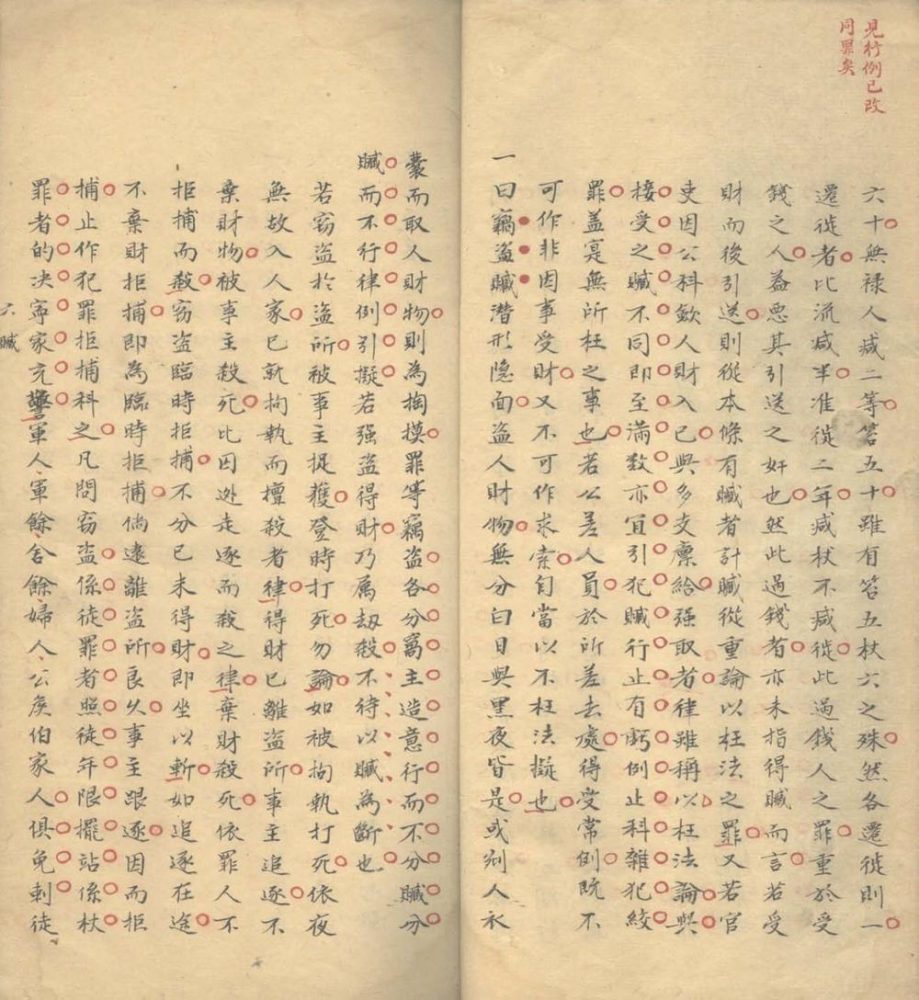 見行例已改
同罪矣
六十無祿人减二等笞五十雖有笞五杖六之殊然各遷徙則一
遷徙者比流减半准徙二年减杖不减徙此過錢人之罪重於受
錢之人益惡其引送之奸也然此過錢者亦未指得贓而言若受
財而後引送則從本條有贓者計贓從重論以枉法之罪又若官
吏因公科斂人財入已與多支廪給强取者律雖稱以枉法論與
接受之贓不同即至滿数亦宜引犯贓行止有虧例止科雜犯絞
罪盖寔無所枉之事也若公差人員於所差去處得受常例既不
可作非因事受財又不可作求索自當以不枉法擬也
一曰竊盗贓潛形隐面盗人財物無分白日與黑夜皆是或剜人衣
囊而取人財物則為掏摸罪等竊盗各分窩主造意行而不分贓分
贓而不行律例引擬若强盗得財乃属刼殺不待以贓為斷也
若窃盗於盗所被事主捉獲登時打死勿論如被拘執打死依夜
無故入人家已就拘執而擅殺者律得財已離盗所事主追逐不
棄財物被事主殺死比因逃走逐而殺之律棄財殺死依罪人不
拒捕而殺窃盗臨時拒捕不分已未得財即坐以斬如追逐在途
不棄財拒捕即為臨時拒捕倘遠離盗所良久事主跟逐因而拒
捕止作犯罪拒捕科之凡問窃盗係徒罪者照徒年限擺站係杖
罪者的决寧家充警軍人軍餘舍餘婦人公侯伯家人俱免刺徒
六贓